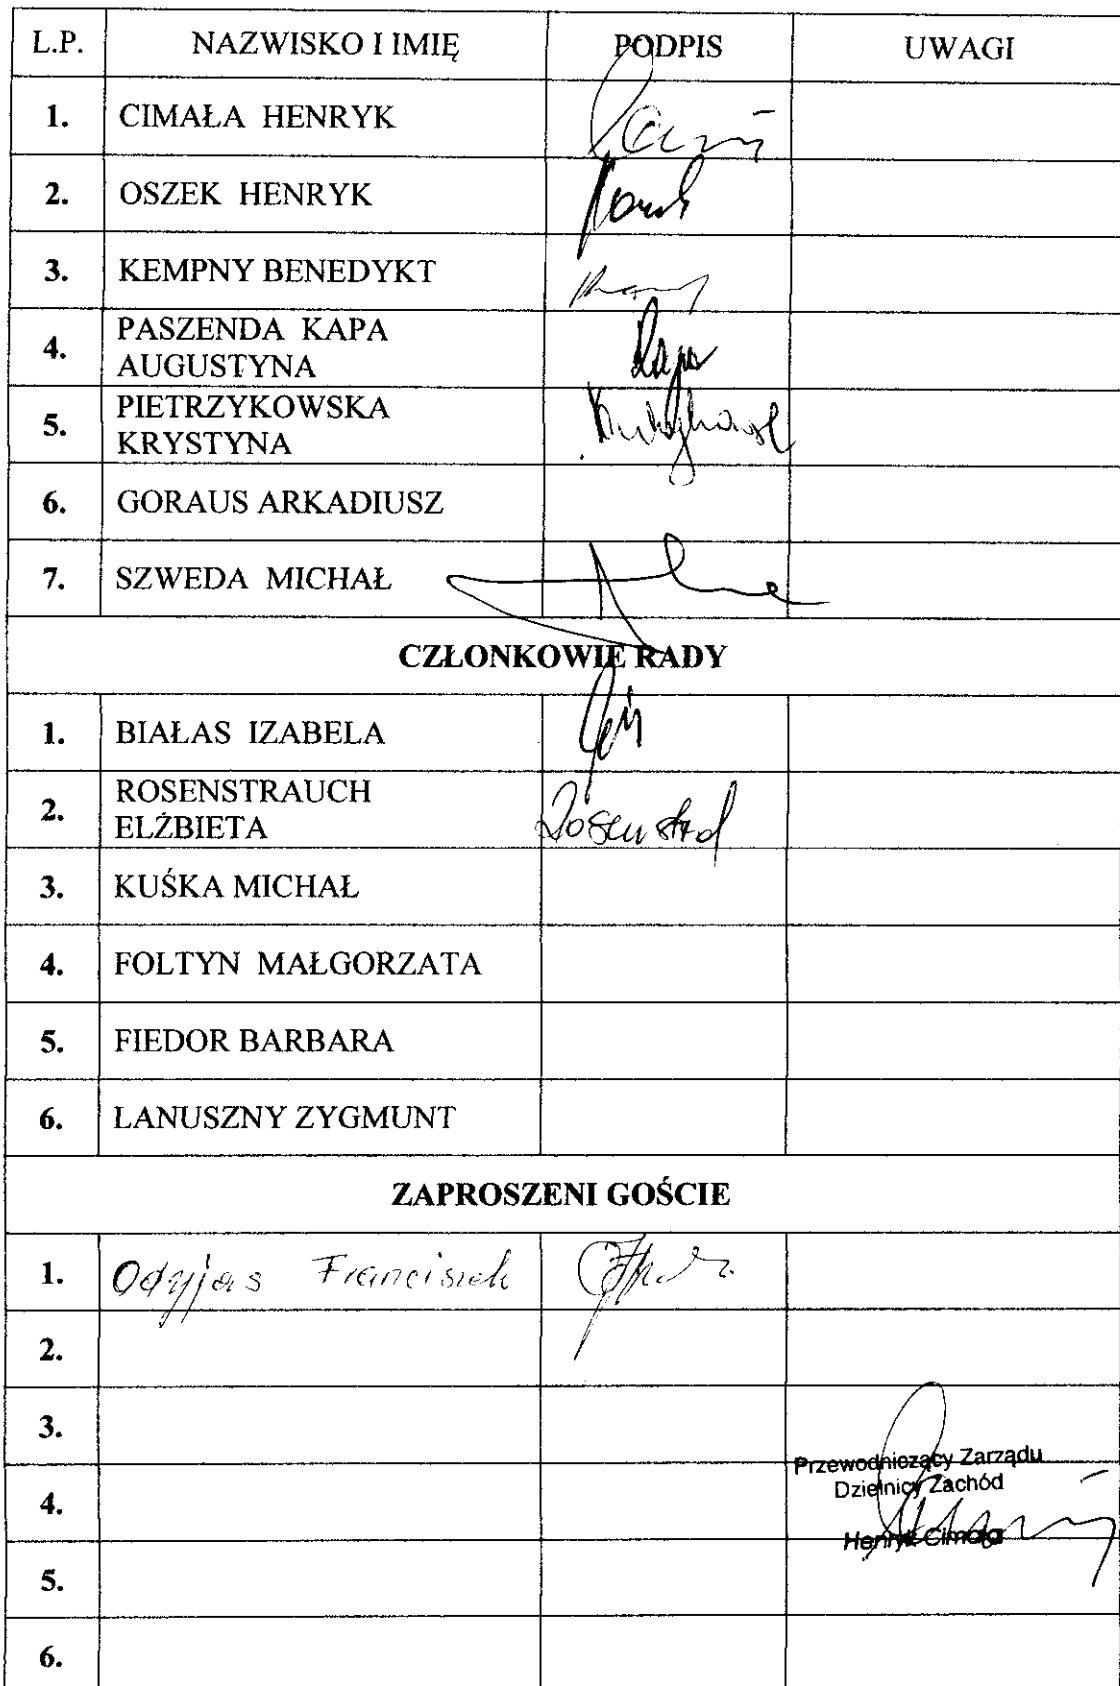 L.P. NAZWISKO I IMIĘ PODPIS UWAGI
1. CIMAŁA HENRYK
2. OSZEK HENRYK
3. KEMPNY BENEDYKT
4. PASZENDA KAPA
AUGUSTYNA
5. PIETRZYKOWSKA
KRYSTYNA
6. GORAUS ARKADIUSZ
7. SZWEDA MICHAŁ
CZŁONKOWIE RADY
1. BIAŁAS IZABELA
2. ROSENSTRAUCH
ELŻBIETA
3. KUŚKA MICHAŁ
4. FOLTYN MAŁGORZATA
5. FIEDOR BARBARA
6. LANUSZNY ZYGMUNT
ZAPROSZENI GOŚCIE
1. Odyjas Franciszek
2.
3.
Przewodniczący Zarządu
Dzielnicy Zachód
4.
Henryk Cimała
5.
6.